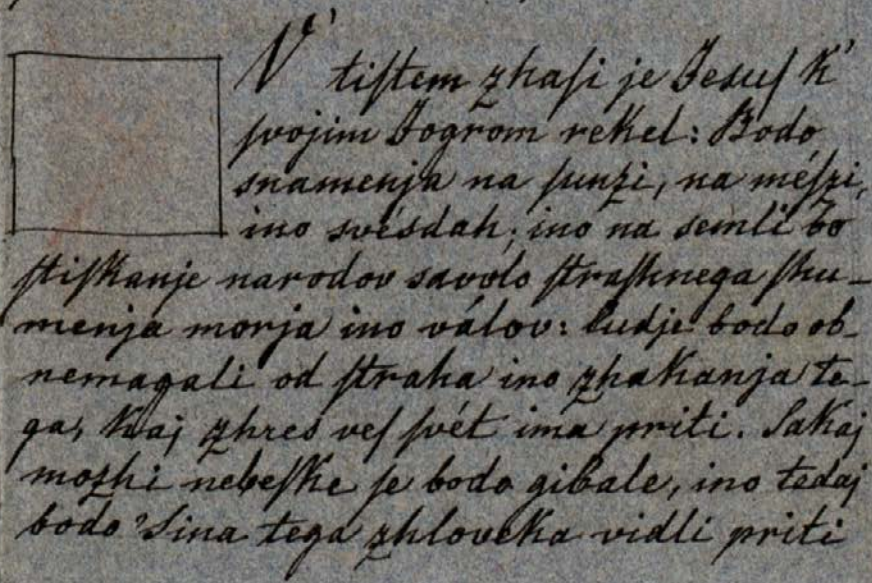 V' tiſtem zhaſi je Jesuſ k'
ſvojim Jogrom rekel: Bodo
snamenja na ſunzi, na méſzi,
ino svésdah; ino na semli bo
ſtiſkanje narodov savolo ſtraſhnega ſhu-
menja morja ino válov: ludje bodo ob-
nemagali od ſtraha ino zhakanja te-
ga, kaj zhres veſ ſvét ima priti. Sakaj
mozhi nebeſke ſe bodo gibale, ino tedaj
bodo Sina tega zhloveka vidli priti